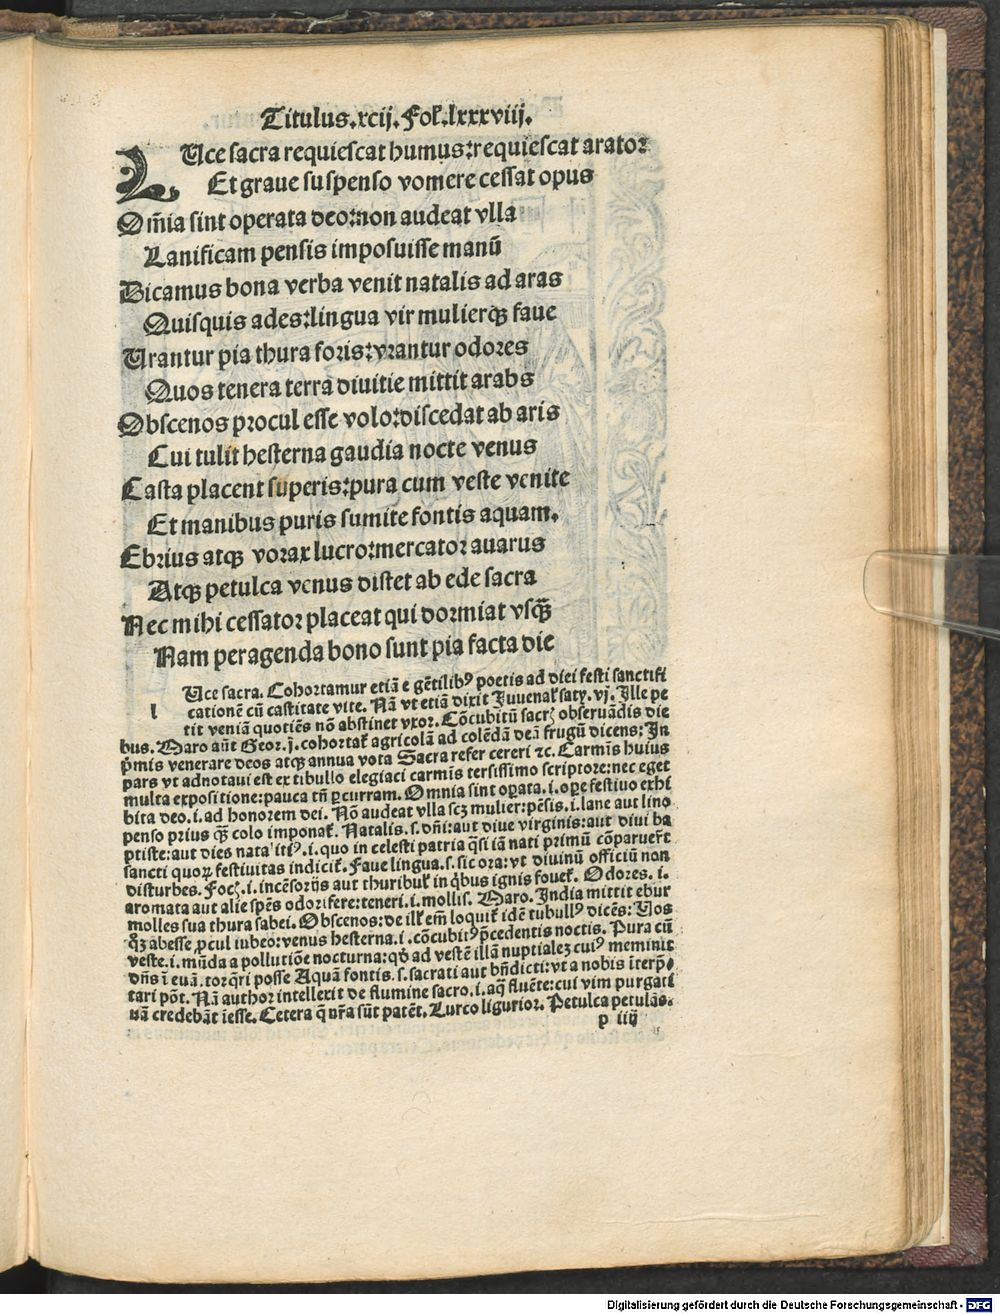 Titulus.xcij. Fol.lxxxviij.
LUce sacra requiescat humus:requiescat arator
Et graue suspenso vomere cessat opus
Om̃ia sint operata deo:non audeat vlla
Lanificam pensis imposuisse manū
Dicamus bona verba venit natalis ad aras
Quisquis ades:lingua vir mulierqꝫ faue
Urantur pia thura foris:vrantur odores
Quos tenera terra diuitie mittit arabs
Obscenos procul esse volo:discedat ab aris
Cui tulit hesterna gaudia nocte venus
Casta placent superis:pura cum veste venite
Et manibus puris sumite fontis aquam.
Ebrius atqꝫ vorax lucro:mercator auarus
Atqꝫ petulca venus distet ab ede sacra
Nec mihi cessator placeat qui dormiat vsqꝫ̄
Nam peragenda bono sunt pia facta die
l Uce sacra. Cohortamur etiā e gētilibꝰ poetis ad diei festi sanctifi
cationē cū castitate vite. Nā vt etiā dixit Juuenal̕ saty. vj. Ille pe
tit veniā quotiēs nō abstinet vxor. Cōcubitū sacrꝭ obseruādis die
bus. Maro aūt Geor. j. cohortat̕ agricolā ad colēdā deā frugū dicens: In
pꝛ̄mis venerare deos atqꝫ annua vota Sacra refer cereri ⁊c. Carmīs huius
pars vt adnotaui est ex tibullo elegiaci carmīs tersissimo scriptore:nec eget
multa expositione:pauca tn̄ ꝑcurram. Omnia sint oꝑata. i. oꝑe festiuo exhi
bita deo. i. ad honorem dei. Nō audeat vlla scꝫ mulier: pēsis. i. lane aut lino
penso prius qꝫ̄ colo imponat̕. Natalis. s. dñi: aut diue virginis: aut diui ba
ptiste: aut dies natalitiꝰ. i. quo in celesti patria q̄si iā nati primū cōparuer̄t
sancti quoꝝ festiuitas indicit̕. Faue lingua. s. sic ora: vt diuinū officiū non
disturbes. Focꝭ. i. incēsorijs aut thuribul̕ in q̇bus ignis fouet̕. Odores. i.
aromata aut alie spēs odorifere: teneri. i. mollis. Maro. India mittit ebur
molles sua thura sabei. Obscenos: de ill̕ em̄ loquit̕ idē tubullꝰ dicēs: Uos
qꝫ abesse ꝓcul iubeo: venus hesterna. i. cōcubitꝰ p̄cedentis noctis. Pura cū
veste. i. mūda a pollutiōe nocturna: qd̕ ad vestē illā nuptialeꝫ cuiꝰ meminit
dn̄s ī euā. torq̄ri posse Aquā fontis. s. sacrati aut bn̄dicti: vt a nobis īterp̄
tari pōt. Nā author intellexit de flumine sacro. i. aq̄ fluēte: cui vim purgati
uā credebāt īesse. Cetera q̄ nr̄a sūt patēt. Lurco ligurior. Petulca petulās.
p iiij
Digitalisierung gefördert durch die Deutsche Forschungsgemeinschaft - DFG